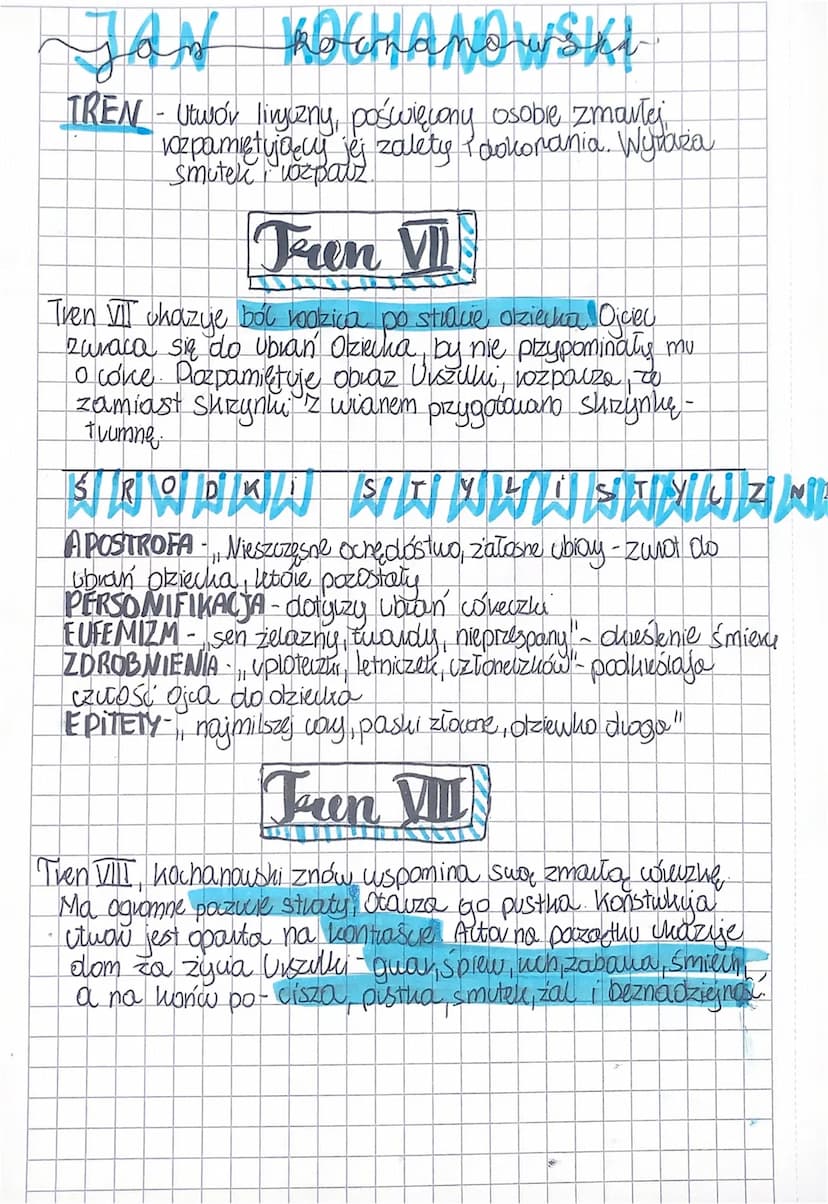 JAN KOCHANOWSKI
Jan Kochanowski
TREN - Utwór liryczny, poświęcony osobie zmarłej,
rozpamiętujący jej zalety i dokonania. Wyraża
smutek i rozpacz.
Tren VII
Tren VII ukazuje ból rodzica po stracie dziecka. Ojciec
zwraca się do ubrań dziecka, by nie przypominały mu
o córce. Rozpamiętuje obraz Urszulki, rozpacza, że
zamiast skrzynki z wianem przygotowano skrzynkę-
trumnę.
ŚRODKI STYLISTYCZN
APOSTROFA - „Nieszczęsne ochędóstwo, żałosne ubiory - zwrot do
ubrań dziecka, które pozostały
PERSONIFIKACJA - dotyczy ubrań córeczki
EUFEMIZM - „sen żelazny, twardy, nieprzespany" - określenie śmierci
ZDROBNIENIA - „uploteczki, letniczek, członeczków" - podkreślają
czułość ojca do dziecka
EPITETY - „najmilszej cory, paski złocone, dziewko droga"
Tren VIII
Tren VIII, Kochanowski znów wspomina swą zmarłą córeczkę.
Ma ogromne poczucie straty, otacza go pustka. Konstukcja
utworu jest oparta na kontraście. Autor na początku ukazuje
dom za życia Urszulki - gwar, śpiew, ruch, zabawa, śmiech,
a na końcu po - cisza, pustka, smutek, żal i beznadziejność.